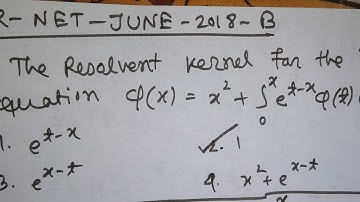 R- NET-JUNE-2018-B
The Resolvent kernel for the
equation φ(x) = x² + ∫₀ˣ e^{t-x} φ(t)
1. e^{t-x} 2. 1
3. e^{x-t} 4. x² + e^{x-t}